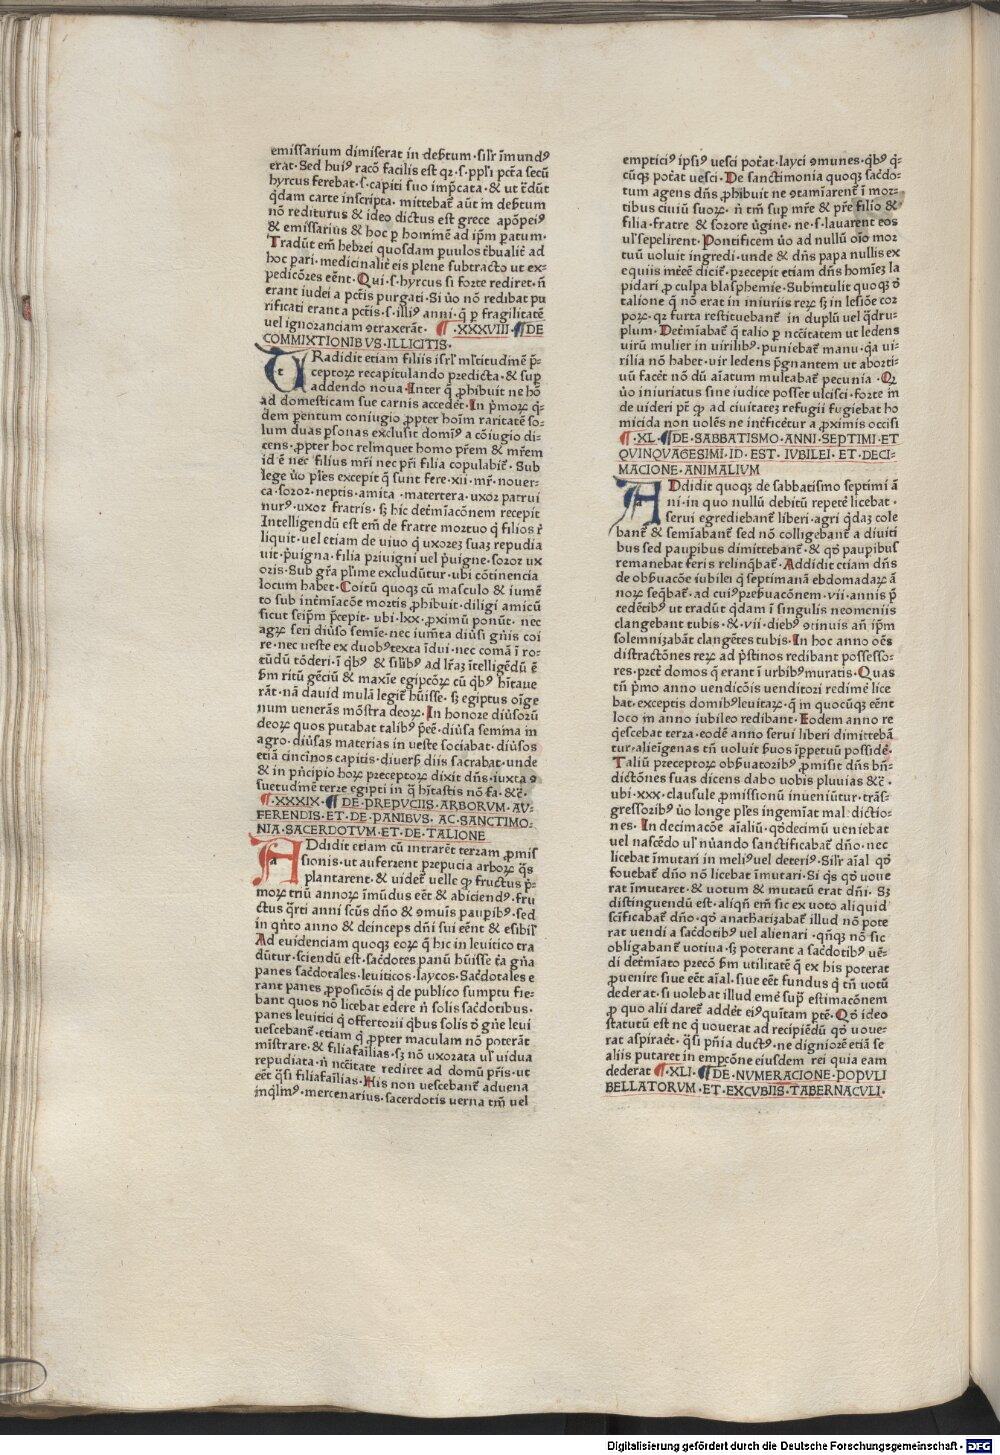 emissarium dimiserat in deẞtum · silr̄ īmundꝰ
erat · Sed huiꝰ racō facilis est qꝛ · s · pp̄li pctā secū
hyrcus ferebat · s · capiti suo imp̄cata · & ut c̄dūt
q̇dam carte inscripta · mittebat᷑ aūt in deẞtum
nō rediturus & ideo dictus est grece apōpeiꝰ
& emissarius & hoc ꝑ hominē ad ip̄m ꝑatum ·
Tradūt em̄ hebrei quosdam ꝑuulos c̄bualit᷑ ad
hoc pari · medicinalit᷑ eis plene subtracto ut ex⸗
pedicōres eēnt · Qui · s · hyrcus si forte rediret · n̄
erant iudei a pctīs purgati · Si ùo nō redibat pu
rificati erant a pctīs · s · illiꝰ anni · q̄ ꝑ fragilitatē
uel ignoranciam ꝯtraxerāt · ¶ · XXXVIII · ¶ DE
COMMIXTIONIBVS · ILLICITIS ·
TRadidit etiam filiis isrl̄ ml̄titudinē p̄⸗
ceptoꝝ recapitulando predicta · & suꝑ
addendo noua · Inter q̄ ꝓhibuit ne hō
ad domesticam sue carnis accedēt · In p̄moꝝ q̇⸗
dem ꝑentum coniugio ꝓpter hoīm raritatē so⸗
lum duas ꝑsonas exclusit domīꝰ a cōiugio di⸗
cens · ꝓpter hoc relinquet homo pr̄em & mr̄em
id ē nec filius mr̄i nec pr̄i filia copulabit᷑ · Sub
lege ùo pl̄es excepit q̄ sunt fere · xii · mr̄ · nouer⸗
ca · soror · neptis · amita · matertera · uxor patrui
nurꝰ · uxor fratris · sꝫ hic det᷑miacōnem recepit
Intelligendū est em̄ de fratre mortuo q̇ filios r̄
liquit · uel etiam de uiuo q̇ uxorez suaꝫ repudia
uit · p̄uigna · filia priuigni uel p̄uigne · soror ux
oris · Sub gr̄a pl̄ime excludūtur · ubi cōtinencia
locum habet · Coitū quoqꝫ cū masculo & iumē⸗
to sub int᷑miacōe mortis ꝓhibuit · diligi amicū
sicut seip̄m p̄cepit · ubi · lxx · ꝓximū ponūt · nec
agꝝ seri diùso semīe · nec iumta diùsi gn̄is coi
re · nec ueste ex duobꝰ texta īdui · nec comā ī ro⸗
tūdū tōderi · ī q̇bꝰ & silībꝰ ad lr̄aꝫ ītelligēdū ē
ẞm ritū gēciū & maxīe egipcōꝝ cū q̇bꝰ hītaue
rāt · nā dauid mulā legit᷑ hūisse · sꝫ egiptus oīge
num uenerās mōstra deoꝝ · In honore diùsorū
deoꝝ quos putabat talibꝰ p̄eē · diùsa semina in
agro · diùsas materias in ueste sociabat · diùsos
etiā cincinos capitis · diuerẞ diis sacrabat · unde
& in pn̄cipio hoꝝ preceptoꝝ dixit dn̄s · iuxta ꝯ
suetudīnē terre egipti in q̄ hītastis nō fa · &c̄ ·
¶ · XXXIX · ¶ DE · PREPVCIIS · ARBORVM · AV⸗
FERENDIS · ET · DE · PANIBVS · AC · SANCTIMO⸗
NIA · SACERDOTVM · ET · DE · TALIONE
ADdidit etiam cū intrarēt terram ꝓmis
sionis · ut auferrent prepucia arboꝝ q̄s
plantarent · & uidet᷑ uelle ꝙ fructus p̄⸗
moꝝ triū annoꝝ īmūdus eēt & abiciendꝰ · fru
ctus q̄rti anni scūs dn̄o & ꝯmuis pauꝑibꝰ · sed
in qn̄to anno & deinceps dn̄i sui eēnt & esibil̄
Ad euidenciam quoqꝫ eoꝝ q̄ hic in leuitico tra
dūtur · sciendū est · sac᷑dotes panū hūisse t̄a gn̄a
panes sac᷑dotales · leuiticos · laycos · Sac᷑dotales e
rant panes ꝓposicōis q̇ de publico sumptu fie⸗
bant quos nō licebat edere n̄ solis sac᷑dotibus ·
panes leuitici q̇ offertorii q̇bus solis ꝺ gn̄e leui
uescebant᷑ · etiam q̇ ꝓpter maculam nō poterāt
mīstrare · & filiafaīlias · sꝫ nō uxorata ul̄ uidua
repudiata · n̄ ncc̄itate rediret ad domū pr̄is · ut
eēt q̄si filiafaīlias · His non uescebant᷑ aduena
inq̇līnꝰ · mercenarius · sacerdotis uerna tm̄ uel
empticiꝰ ipsiꝰ uesci pot᷑at · layci ꝯmunes · q̇bꝰ q̇⸗
cūqꝫ pot᷑at uesci · De sanctimonia quoqꝫ sac᷑do⸗
tum agens dn̄s ꝓhibuit ne ꝯtamīarent᷑ ī mor⸗
tibus ciuiū suoꝝ · n̄ tm̄ suꝑ mr̄e & pr̄e filio &
filia · fratre & sorore ùgine · ne · s · lauarent eos
ul̄ sepelirent · Pontificem ùo ad nullū oīo mor
tuū uoluit ingredi · unde & dn̄s papa nullis ex
equiis int᷑eē dicit᷑ · precepit etiam dn̄s homīeꝫ la
pidari ꝓ culpa blasphemie · Subintulit quoqꝫ ꝺ
talione q̄ nō erat in iniuriis reꝝ sꝫ in lesiōe cor
poꝝ · qꝛ furta restituebant᷑ in duplū uel q̇dru⸗
plum · Det᷑miabat᷑ q̄ talio ꝑ ncc̄itatem ut ledens
uirū mulier in uirilibꝰ · puniebat᷑ manu · q̇a ui⸗
rilia nō habet · uir ledens p̄gnantem ut aborti⸗
uū facēt nō dū aīatum multabat᷑ pecunia · Qꝛ
ùo iniuriatus sine iudice posset ulcisci · forte in
de uideri pt̄ ꝙ ad ciuitateꝫ refugii fugiebat ho
micida non uolēs ne int᷑ficet᷑ur a ꝓximis occisi
¶ · XL · ¶ DE · SABBATISMO · ANNI · SEPTIMI · ET
QVINQVAGESIMI · ID · EST · IVBILEI · ET · DECI⸗
MACIONE · ANIMALIVM
ADdidit quoqꝫ de sabbatismo septimi ā
ni · in quo nullū debitū repet᷑e licebat ·
serui egrediebant᷑ liberi · agri q̇daꝫ cole
bant᷑ & semīabant᷑ sed nō colligebant᷑ a diuiti
bus sed pauꝑibus dimittebant᷑ · & qꝺ̄ pauꝑibus
remanebat feris relinq̇bat᷑ · Addidit etiam dn̄s
de obẞuacōe iubilei q̄ septimanā ebdomadaꝝ ā
noꝝ seq̄bat᷑ · ad cuiꝰ preẞuacōnem · vii · annis p̄
cedētibꝰ ut tradūt q̇dam ī singulis neomeniis
clangebant tubis · & · vii · diebꝰ ꝯtinuis an̄ ip̄m
solemnizabāt clangētes tubis · In hoc anno oēs
distractōnes reꝝ ad p̄stinos redibant possesso⸗
res · pret᷑ domos q̄ erant ī urbibꝰ muratis · Quas
tn̄ p̄mo anno uendicōis uenditori redimē lice
bat · exceptis domibꝰ leuitaꝝ · q̄ in quocūqꝫ eēnt
loco in anno iubileo redibant · Eodem anno re
q̇escebat terra · eodē anno serui liberi dimittebā
tur · alieīgenas tn̄ uoluit ẞuos īppetuū possidē ·
Taliū preceptoꝝ obẞuatoribꝰ ꝓmisit dn̄s bn̄⸗
dictōnes suas dicens dabo uobis pluuias &c̄ ·
ubi · xxx · clausule ꝓmissionū inueniūtur · trās⸗
gressoribꝰ ùo longe pl̄es ingemīat mal·dictio⸗
nes · In decimacōe aīaliū · qꝺ̄ decimū ueniebat
uel nascēdo ul̄ nūando sanctificabat᷑ dn̄o · nec
licebat īmutari in meliꝰ uel deteriꝰ · Silr̄ aīal qꝺ̄
fouebat᷑ dn̄o nō licebat īmutari · Si q̇s qꝺ̄ uoue
rat īmutaret · & uotum & mutatū erat dn̄i · Sꝫ
distinguendū est · aliqn̄ em̄ sic ex uoto aliquid
sc̄ificabat᷑ dn̄o · qꝺ̄ anathatizabat᷑ illud nō pote
rat uendi a sac᷑dotibꝰ uel alienari · qn̄qꝫ nō sic
obligabant᷑ uotiua · sꝫ poterant a sac᷑dotibꝰ uē⸗
di det᷑miato precō ẞm utilitatē q̄ ex his poterat
ꝓuenire siue eēt aīal · siue eēt fundus q̇ tn̄ uotū
dederat · si uolebat illud emē suꝑ estimacōnem
ꝓ quo alii daret᷑ addēt eiꝰ quītam ptē · Qꝺ̄ ideo
statutū est ne q̇ uouerat ad recipiēdū qꝺ̄ uoue⸗
rat aspiraēt · q̄si pn̄ia ductꝰ · ne digniorē etiā se
aliis putaret in empcōne eiusdem rei quia eam
dederat ¶ · XLI · ¶ DE · NVMERACIONE · POPVLI
BELLATORVM · ET · EXCVBIIS · TABERNACVLI ·
Digitalisierung gefördert durch die Deutsche Forschungsgemeinschaft - DFG